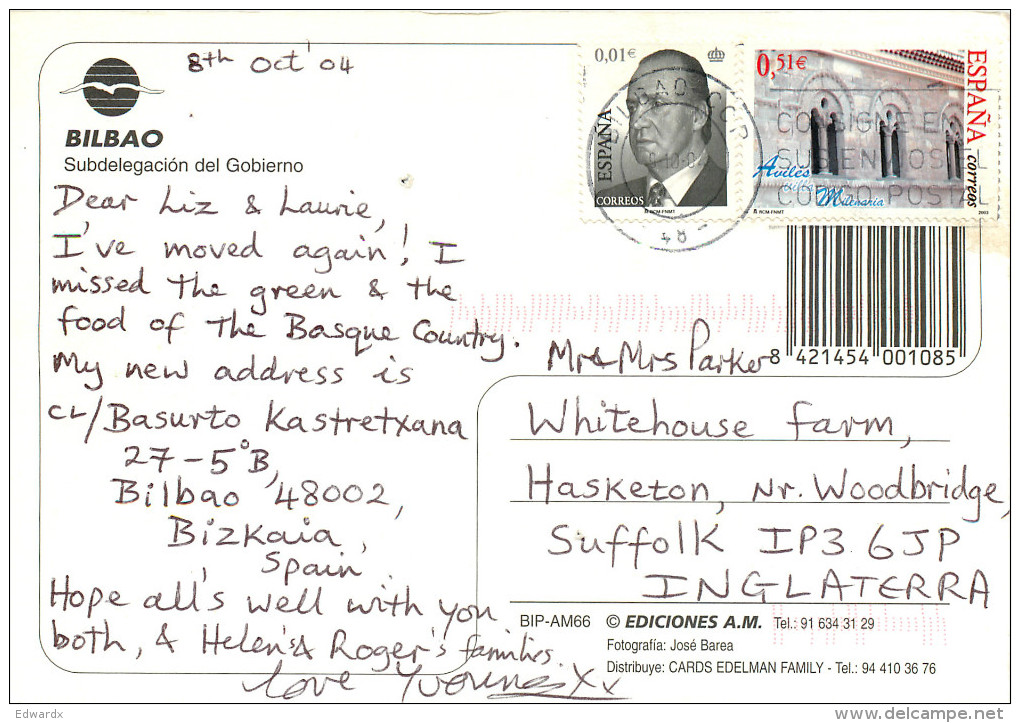 8th Oct '04
BILBAO
Subdelegación del Gobierno
Dear Liz & Laurie,
I've moved again! I
missed the green & the
food of the Basque Country.
My new address is
CL/Basurto Kastretxana
27-5°B,
Bilbao 48002,
Bizkaia,
Spain.
Hope all's well with you
both, & Helen's & Roger's families.
Love Yvonne xx
0,01€
ESPAÑA
CORREOS
RCM FNMT
BILBAO CCP
48
0,51€
ESPAÑA
correos
Avilés
villa
Milenaria
RCM-FNMT
2003
CONSIGNE EN
SUS ENVIOS EL
CODIGO POSTAL
8 421454 001085
Mr & Mrs Parker
Whitehouse Farm,
Hasketon, Nr. Woodbridge,
Suffolk IP3 6JP
INGLATERRA
BIP-AM66 © EDICIONES A.M. Tel.: 91 634 31 29
Fotografía: José Barea
Distribuye: CARDS EDELMAN FAMILY - Tel.: 94 410 36 76
Edwardx
www.delcampe.net